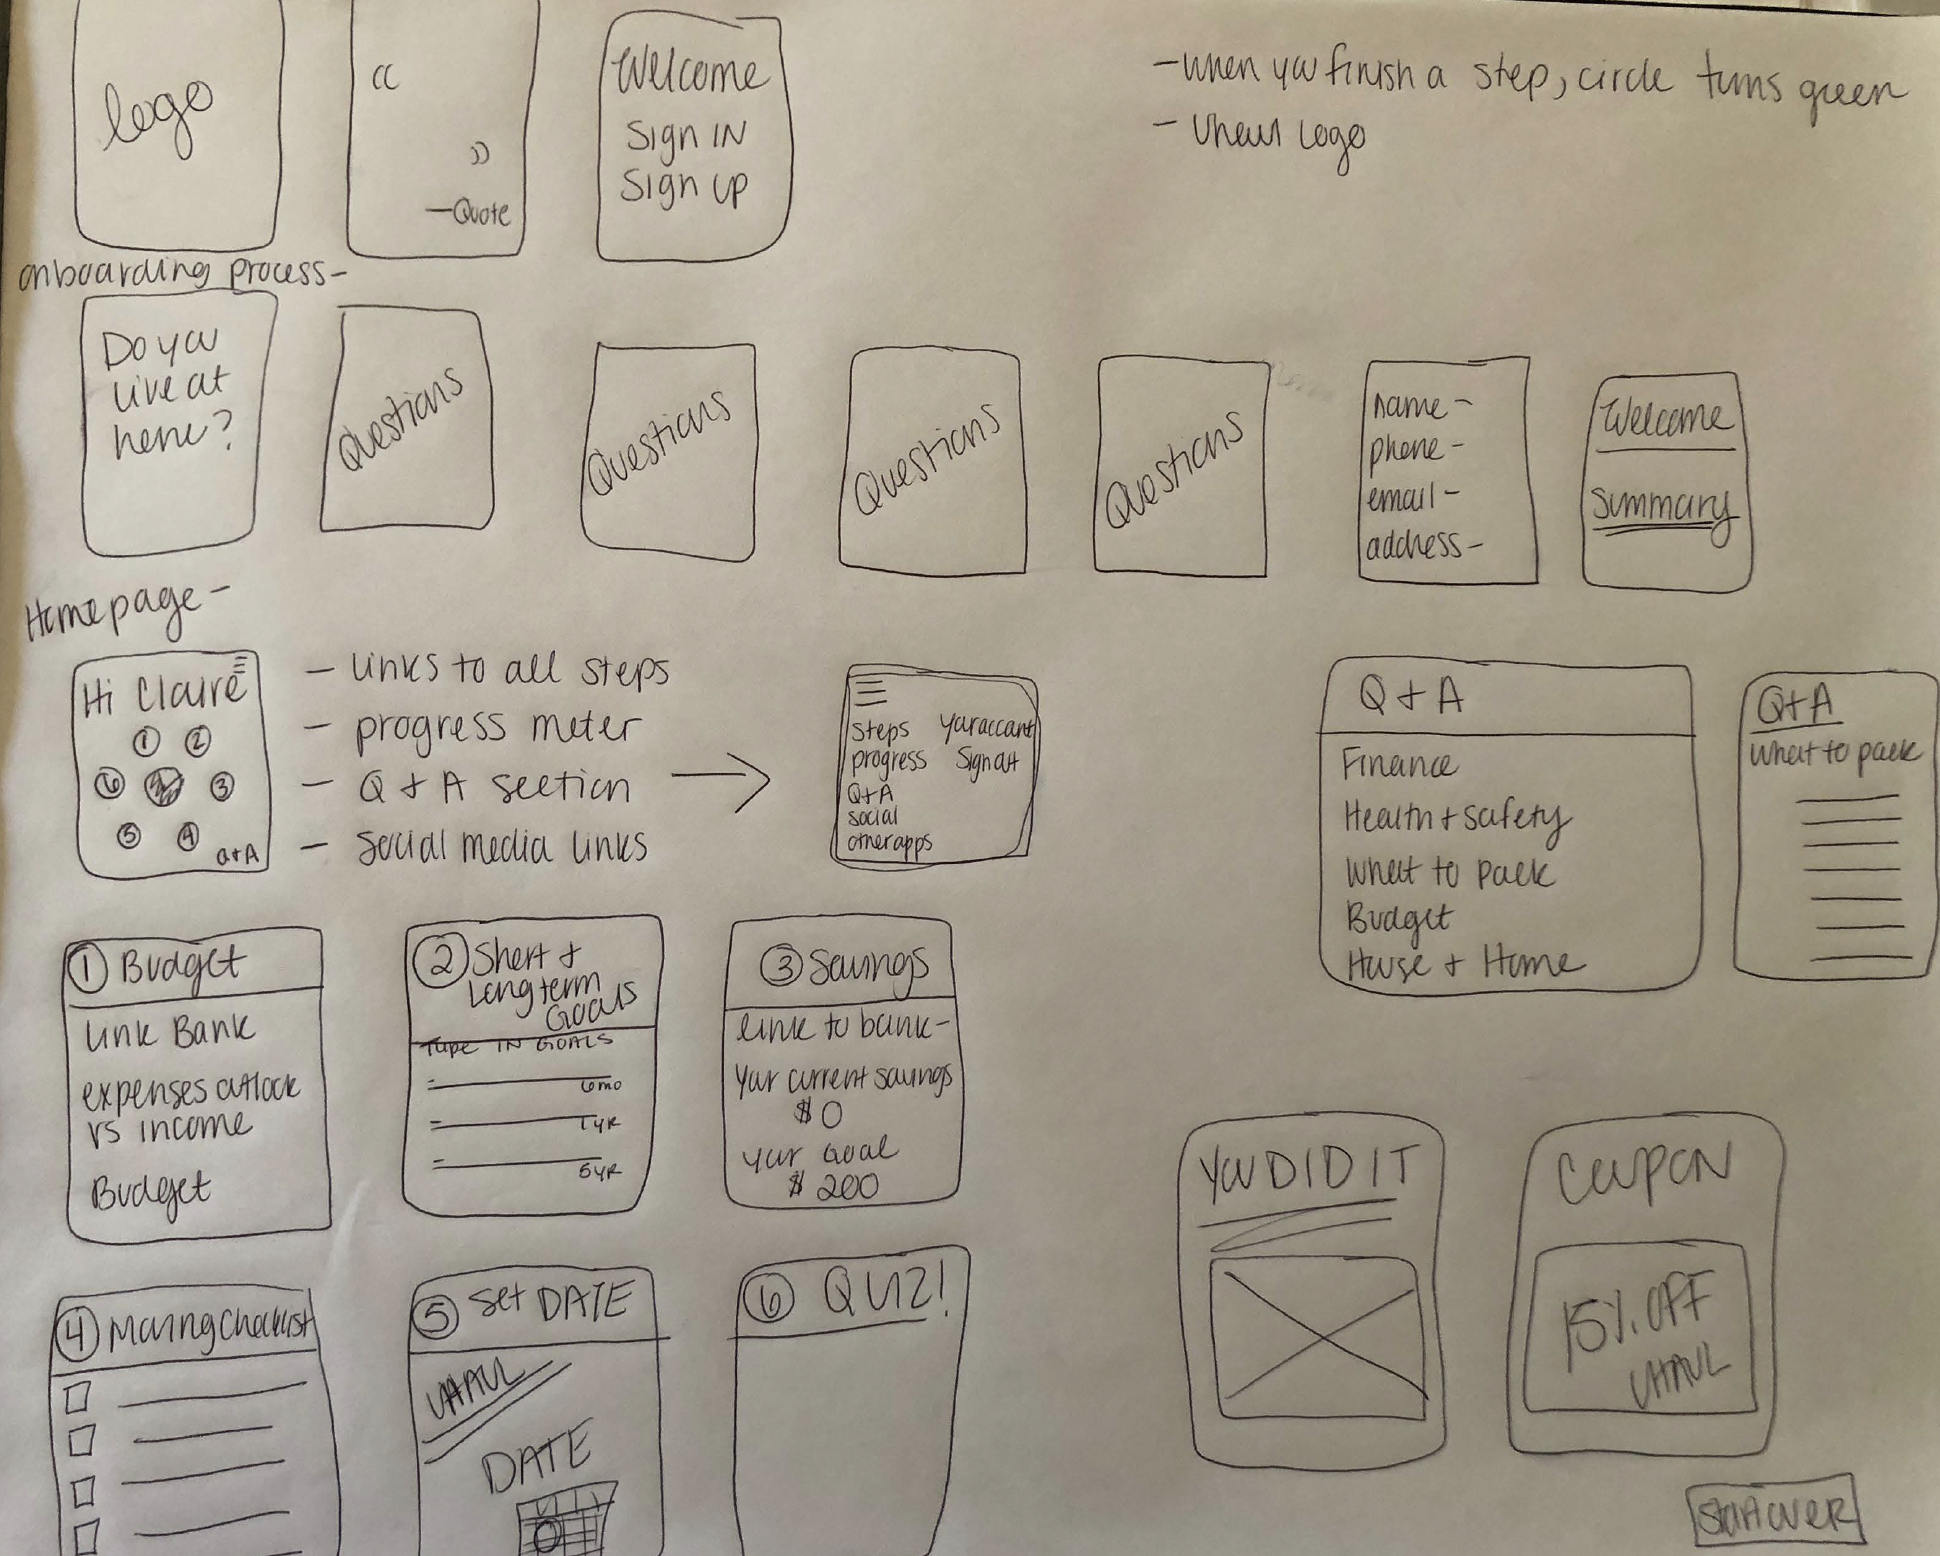 logo
“
”
—Quote
Welcome
Sign IN
Sign up
- when you finish a step, circle turns green
- Uhaul logo
onboarding process-
Do you
live at
here?
Questions
Questions
Questions
Questions
name-
phone-
email-
address-
Welcome
Summary
Homepage-
Hi Claire
1
2
6
3
5
4
Q+A
- links to all steps
- progress meter
- Q + A section
- social media links
steps
progress
Q+A
social
other apps
your account
Sign out
Q + A
Finance
Health + safety
What to pack
Budget
House + Home
Q+A
What to pack
1 Budget
link Bank
expenses outlook
vs income
Budget
2 Short +
Long term
Goals
Type IN GOALS
6mo
1yr
5yr
3 savings
link to bank-
Your current savings
$0
your Goal
$200
4 Moving Checklist
5 set DATE
UHAUL
DATE
6 QUIZ!
You DID IT
COUPON
15% OFF
UHAUL
Start over